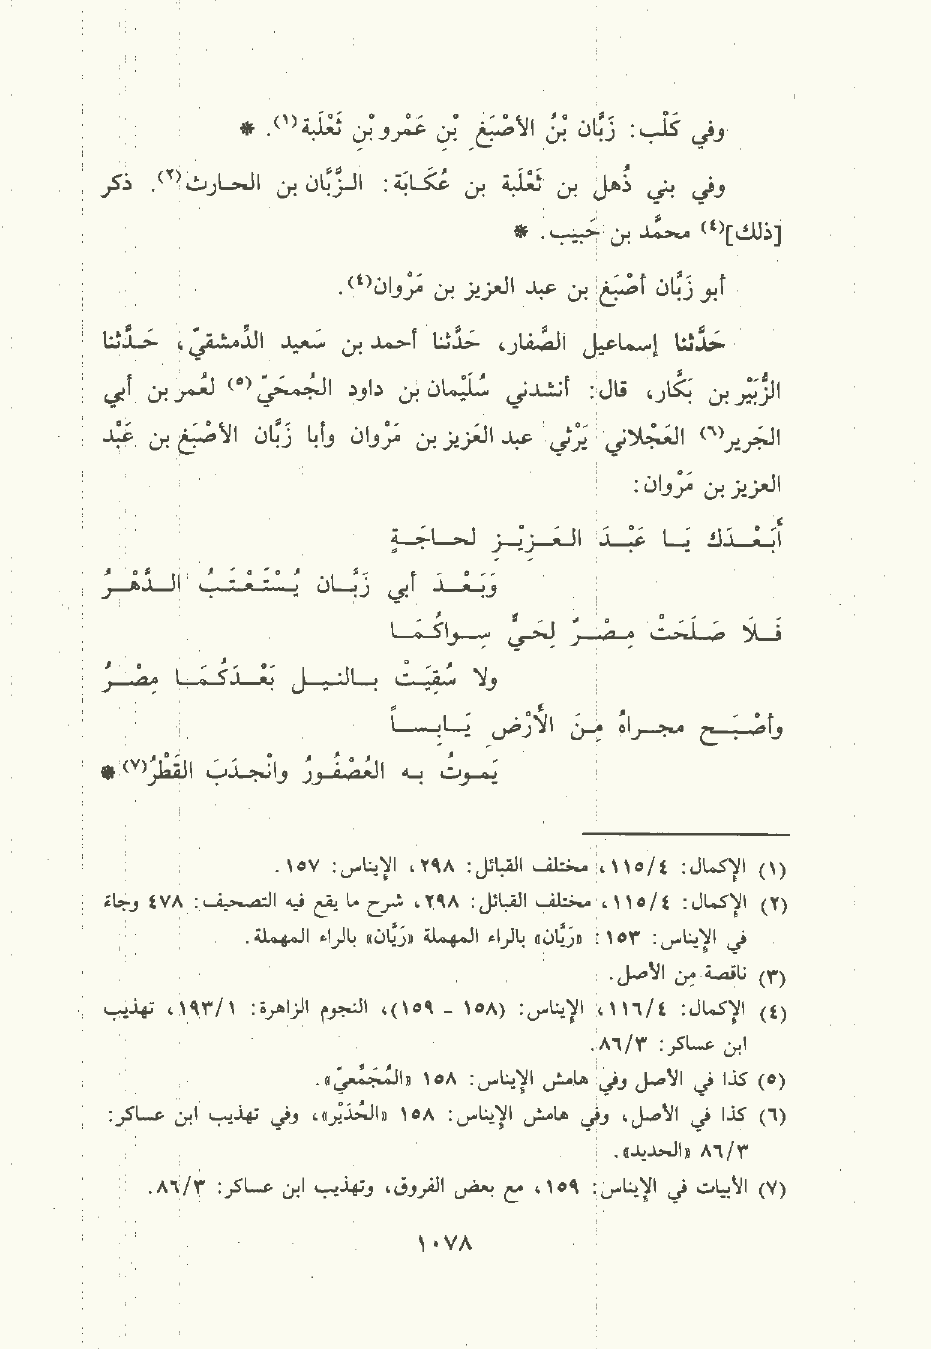 وفي كَلْب: زَبَّان بْنُ الأصْبَغِ بْنِ عَمْرو بْنِ ثَعْلَبة(١). *
وفي بني ذُهل بن ثَعْلَبة بن عُكَـابَة: الزَّبَّان بن الحـارث(٢). ذكر
[ذلك](٤) محمَّد بن حَبيب. *
أبو زَبَّان أصْبَغ بن عبد العزيز بن مَرْوان(٤).
حَدَّثنا إسماعيل الصَّفار، حَدَّثنا أحمد بن سَعيد الدِّمشقيّ، حَـدَّثنا
الزُّبَيْر بن بَكَّار، قال: أنشدني سُلَيْمان بن داود الجُمحَيّ(٥) لعُمر بن أبي
الجَرير(٦) العَجْلاني يَرْثي عبد العَزيز بن مَرْوان وأبا زَبَّان الأصْبَغ بن عَبْد
العزيز بن مَرْوان:
أَبَعْـدَك يَـا عَبْـدَ العَـزِيْـزِ لحـاجَـةٍ
وَبَـعْـدَ أبي زَبَّـان يُـسْتَـعْـتَـبُ الـدَّهْـرُ
فَـلَا صَلَحَتْ مِـصْـرٌ لِحَـيٍّ سِـواكُمَـا
ولا سُقِيَـتْ بـالنيـل بَعْـدَكُمَـا مِصْـرُ
وأصْبَـح مجـراهُ مِـنَ الأَرْضِ يَـابِـسـاً
يَموتُ بـه العُصْفُـورُ وانْجـدَبَ القَطْرُ(٧) *
(١) الإكمال: ٤/١١٥، مختلف القبائل: ٢٩٨، الإيناس: ١٥٧.
(٢) الإكمال: ٤/١١٥، مختلف القبائل: ٢٩٨، شرح ما يقع فيه التصحيف: ٤٧٨ وجاءَ
في الإيناس: ١٥٣: «رَيَّان» بالراء المهملة «رَيَّان» بالراء المهملة.
(٣) ناقصة مِن الأصل.
(٤) الإكمال: ٤/١١٦، الإيناس: (١٥٨ - ١٥٩)، النجوم الزاهرة: ١/١٩٣، تهذيب
ابن عساكر: ٣/٨٦.
(٥) كذا في الأصل وفي هامش الإيناس: ١٥٨ «المُجَمَّعيّ».
(٦) كذا في الأصل، وفي هامش الإيناس: ١٥٨ «الحُدَيْر»، وفي تهذيب ابن عساكر:
٣/٨٦ «الحديد».
(٧) الأبيات في الإيناس: ١٥٩، مع بعض الفروق، وتهذيب ابن عساكر: ٣/٨٦.
١٠٧٨